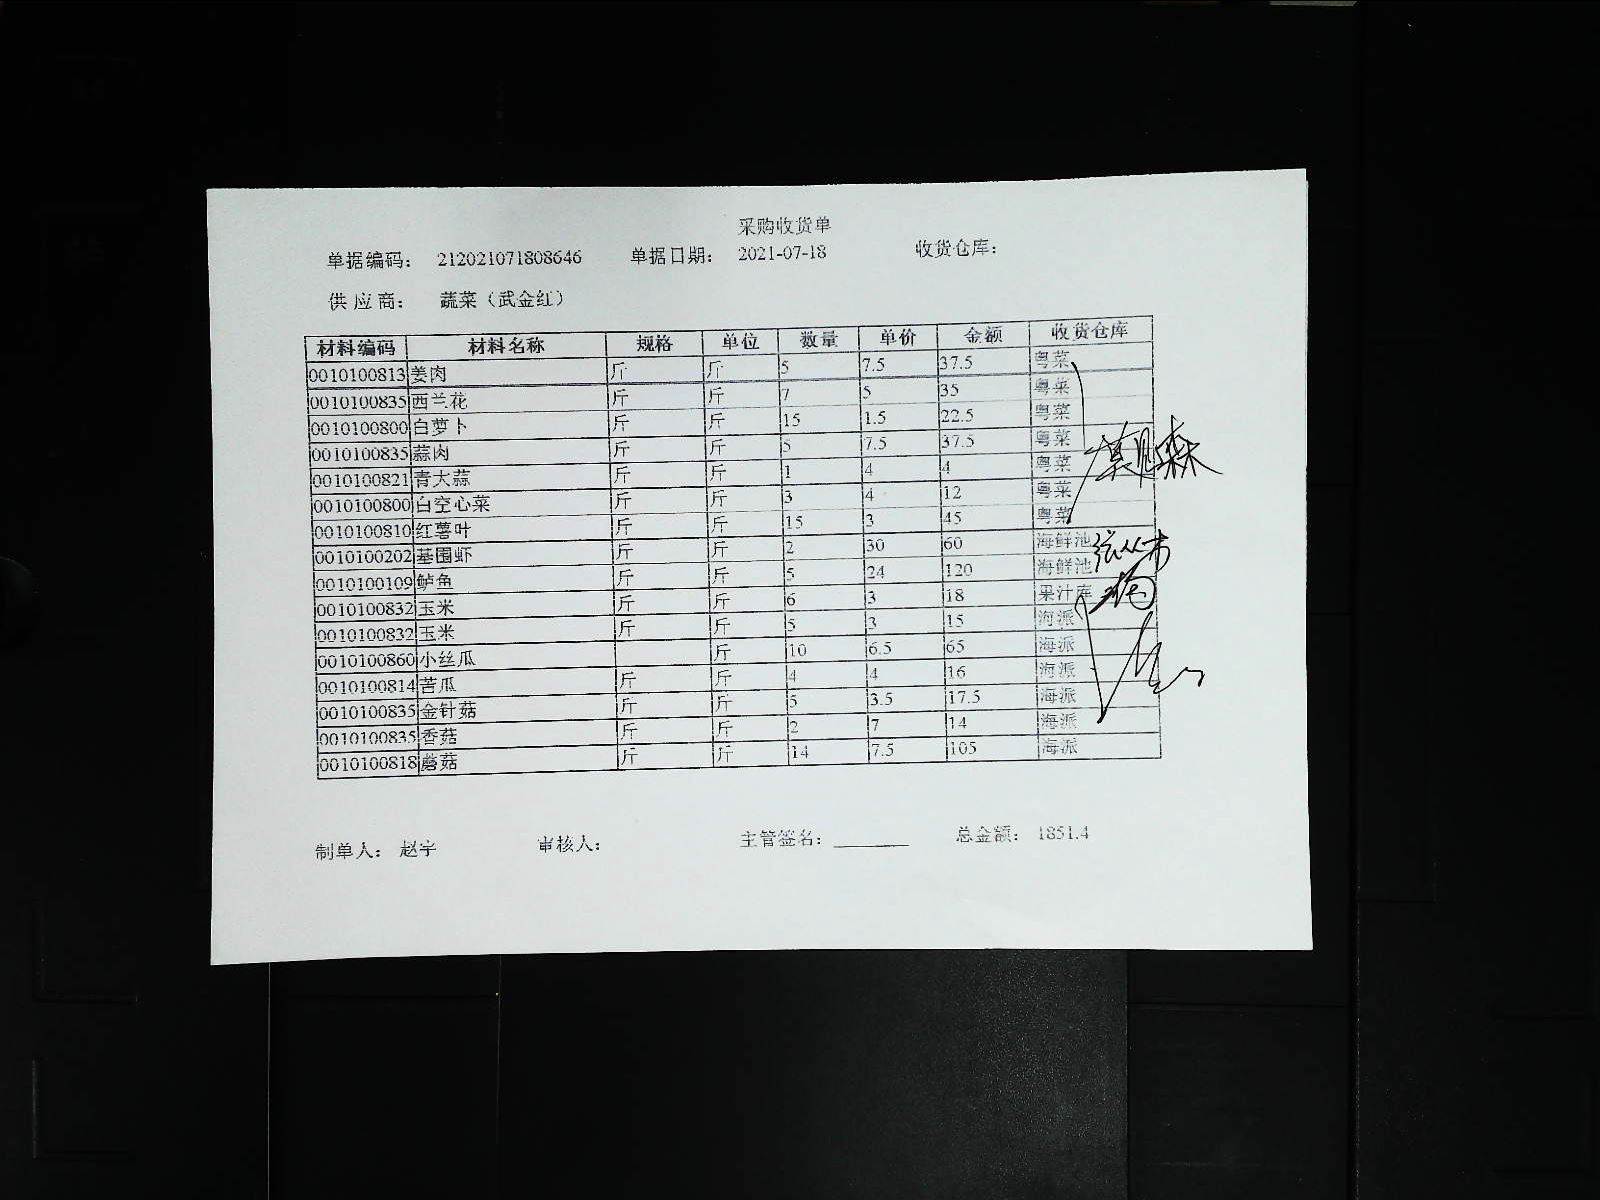 采购收货单
单据编码： 212021071808646 单据日期： 2021-07-18 收货仓库：
供 应 商： 蔬菜（武金红）
材料编码 材料名称 规格 单位 数量 单价 金额 收货仓库
0010100813 姜肉 斤 斤 5 7.5 37.5 粤菜
0010100835 西兰花 斤 斤 7 5 35 粤菜
0010100800 白萝卜 斤 斤 15 1.5 22.5 粤菜
0010100835 蒜肉 斤 斤 5 7.5 37.5 粤菜
0010100821 青大蒜 斤 斤 1 4 4 粤菜
0010100800 白空心菜 斤 斤 3 4 12 粤菜
0010100810 红薯叶 斤 斤 15 3 45 粤菜
0010100202 基围虾 斤 斤 2 30 60 海鲜池
0010100109 鲈鱼 斤 斤 5 24 120 海鲜池
0010100832 玉米 斤 斤 6 3 18 果汁库
0010100832 玉米 斤 斤 5 3 15 海派
0010100860 小丝瓜 斤 10 6.5 65 海派
0010100814 苦瓜 斤 斤 4 4 16 海派
0010100835 金针菇 斤 斤 5 3.5 17.5 海派
0010100835 香菇 斤 斤 2 7 14 海派
0010100818 蘑菇 斤 斤 14 7.5 105 海派
制单人： 赵宇 审核人： 主管签名： 总金额： 1851.4